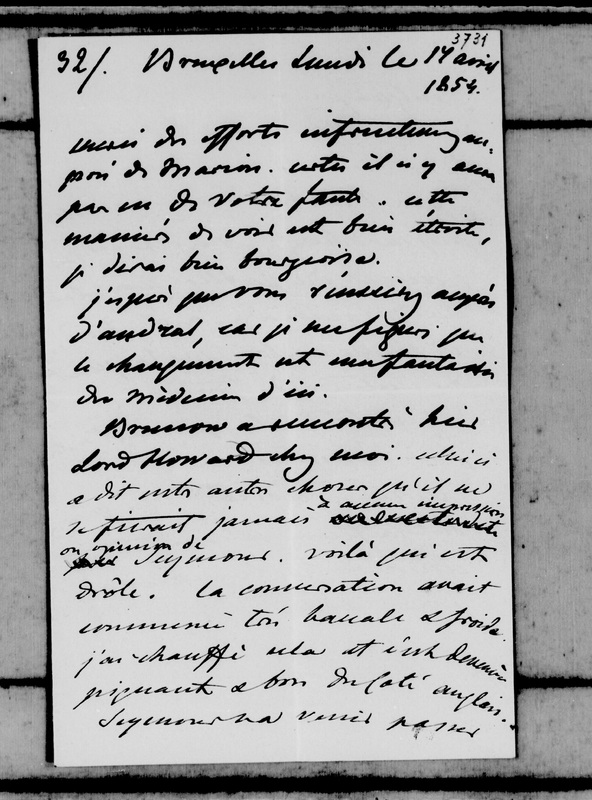 3731
32/. Bruxelles Lundi le 17 avril
1854.
merci des efforts infructueux au-
près de Marion. certes il n'y aura
pas eu de votre faute. cette
manière de voir est bien étroite,
je dirai bien bourgeoise.
j'espère que vous réussirez auprès
d'Andral, car je me figure que
le changement est une fantaisie
du médecin d'ici.
Brunnow a rencontré hier
Lord Howard chez moi. celui ci
a dit entre autres choses qu'il ne
se fierait jamais à aucune impression
ou opinion de Seymour. voilà qui est
drôle. la conversation avait
commencé très banale & froide.
j'ai chauffé cela et c'est devenu
piquant & bon du côté anglais.
Seymour va venir passer